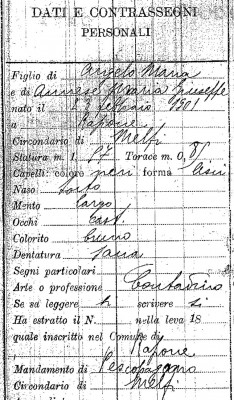 DATI E CONTRASSEGNI
PERSONALI
Figlio di Angelo Maria
e di Annese Maria Giuseppe
nato il 1901
a Rapone
Circondario di Melfi
Statura m. 1, 77 Torace m. 0,
Capelli: colore neri forma lisci
Naso
Mento largo
Occhi Cast.
Colorito bruno
Dentatura sana
Segni particolari
Arte o professione Contadino
Se sa leggere scrivere si
Ha estratto il N. nella leva 18
quale inscritto nel Comune di
Rapone
Mandamento di Pescopagano
Circondario di Melfi